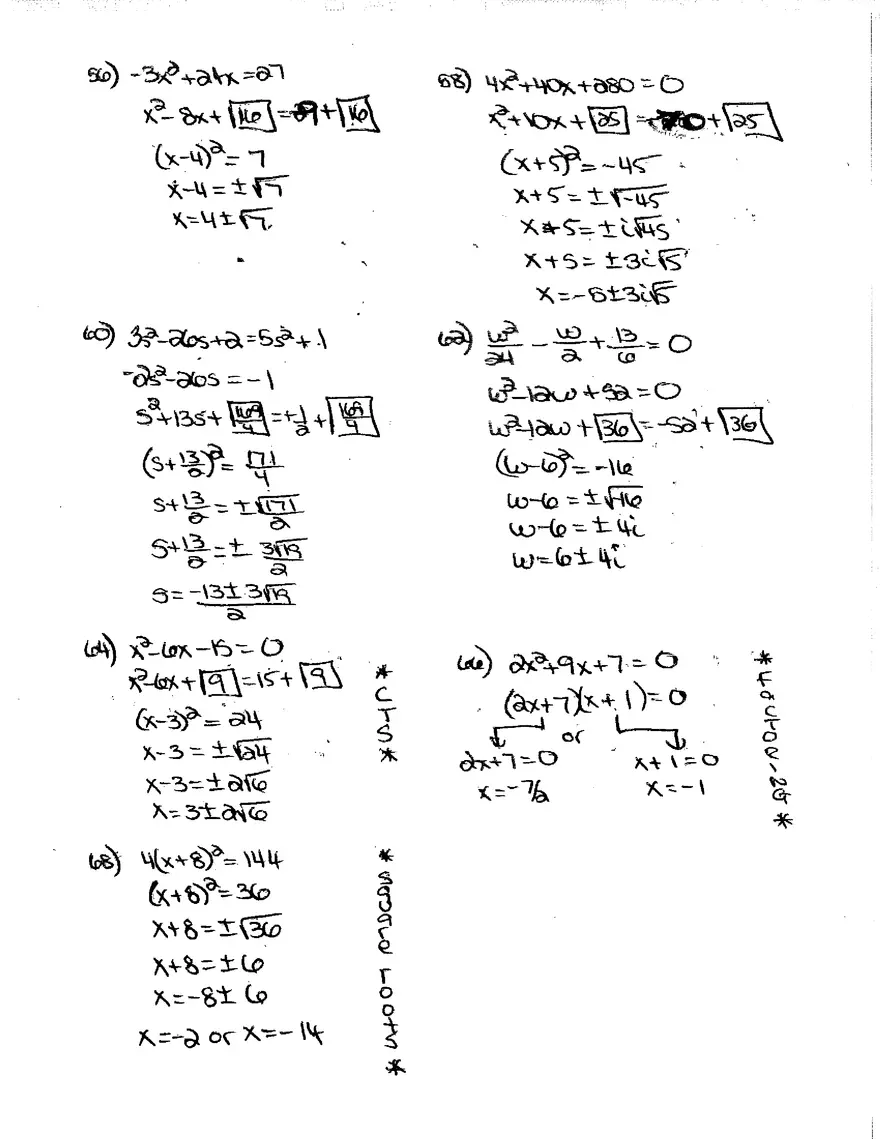 56) -3x²+24x=27
x²-8x+[16]=-9+[16]
(x-4)²=7
x-4=±√7
x=4±√7
58) 4x²+40x+280=0
x²+10x+[25]=-70+[25]
(x+5)²=-45
x+5=±√-45
x+5=±i√45
x+5=±3i√5
x=-5±3i√5
60) 3s²-26s+2=5s²+1
-2s²-26s=-1
s²+13s+[169/4]=+1/2+[169/4]
(s+13/2)²=171/4
s+13/2=±√171/2
s+13/2=±3√19/2
s=-13±3√19/2
62) w²/24-w/2+13/6=0
w²-12w+52=0
w²-12w+[36]=-52+[36]
(w-6)²=-16
w-6=±√-16
w-6=±4i
w=6±4i
64) x²-6x-15=0
x²-6x+[9]=15+[9]
(x-3)²=24
x-3=±√24
x-3=±2√6
x=3±2√6
*CTS*
66) 2x²+9x+7=0
(2x+7)(x+1)=0
or
2x+7=0 x+1=0
x=-7/2 x=-1
*Factor-25*
68) 4(x+8)²=144
(x+8)²=36
x+8=±√36
x+8=±6
x=-8±6
x=-2 or x=-14
*square roots*